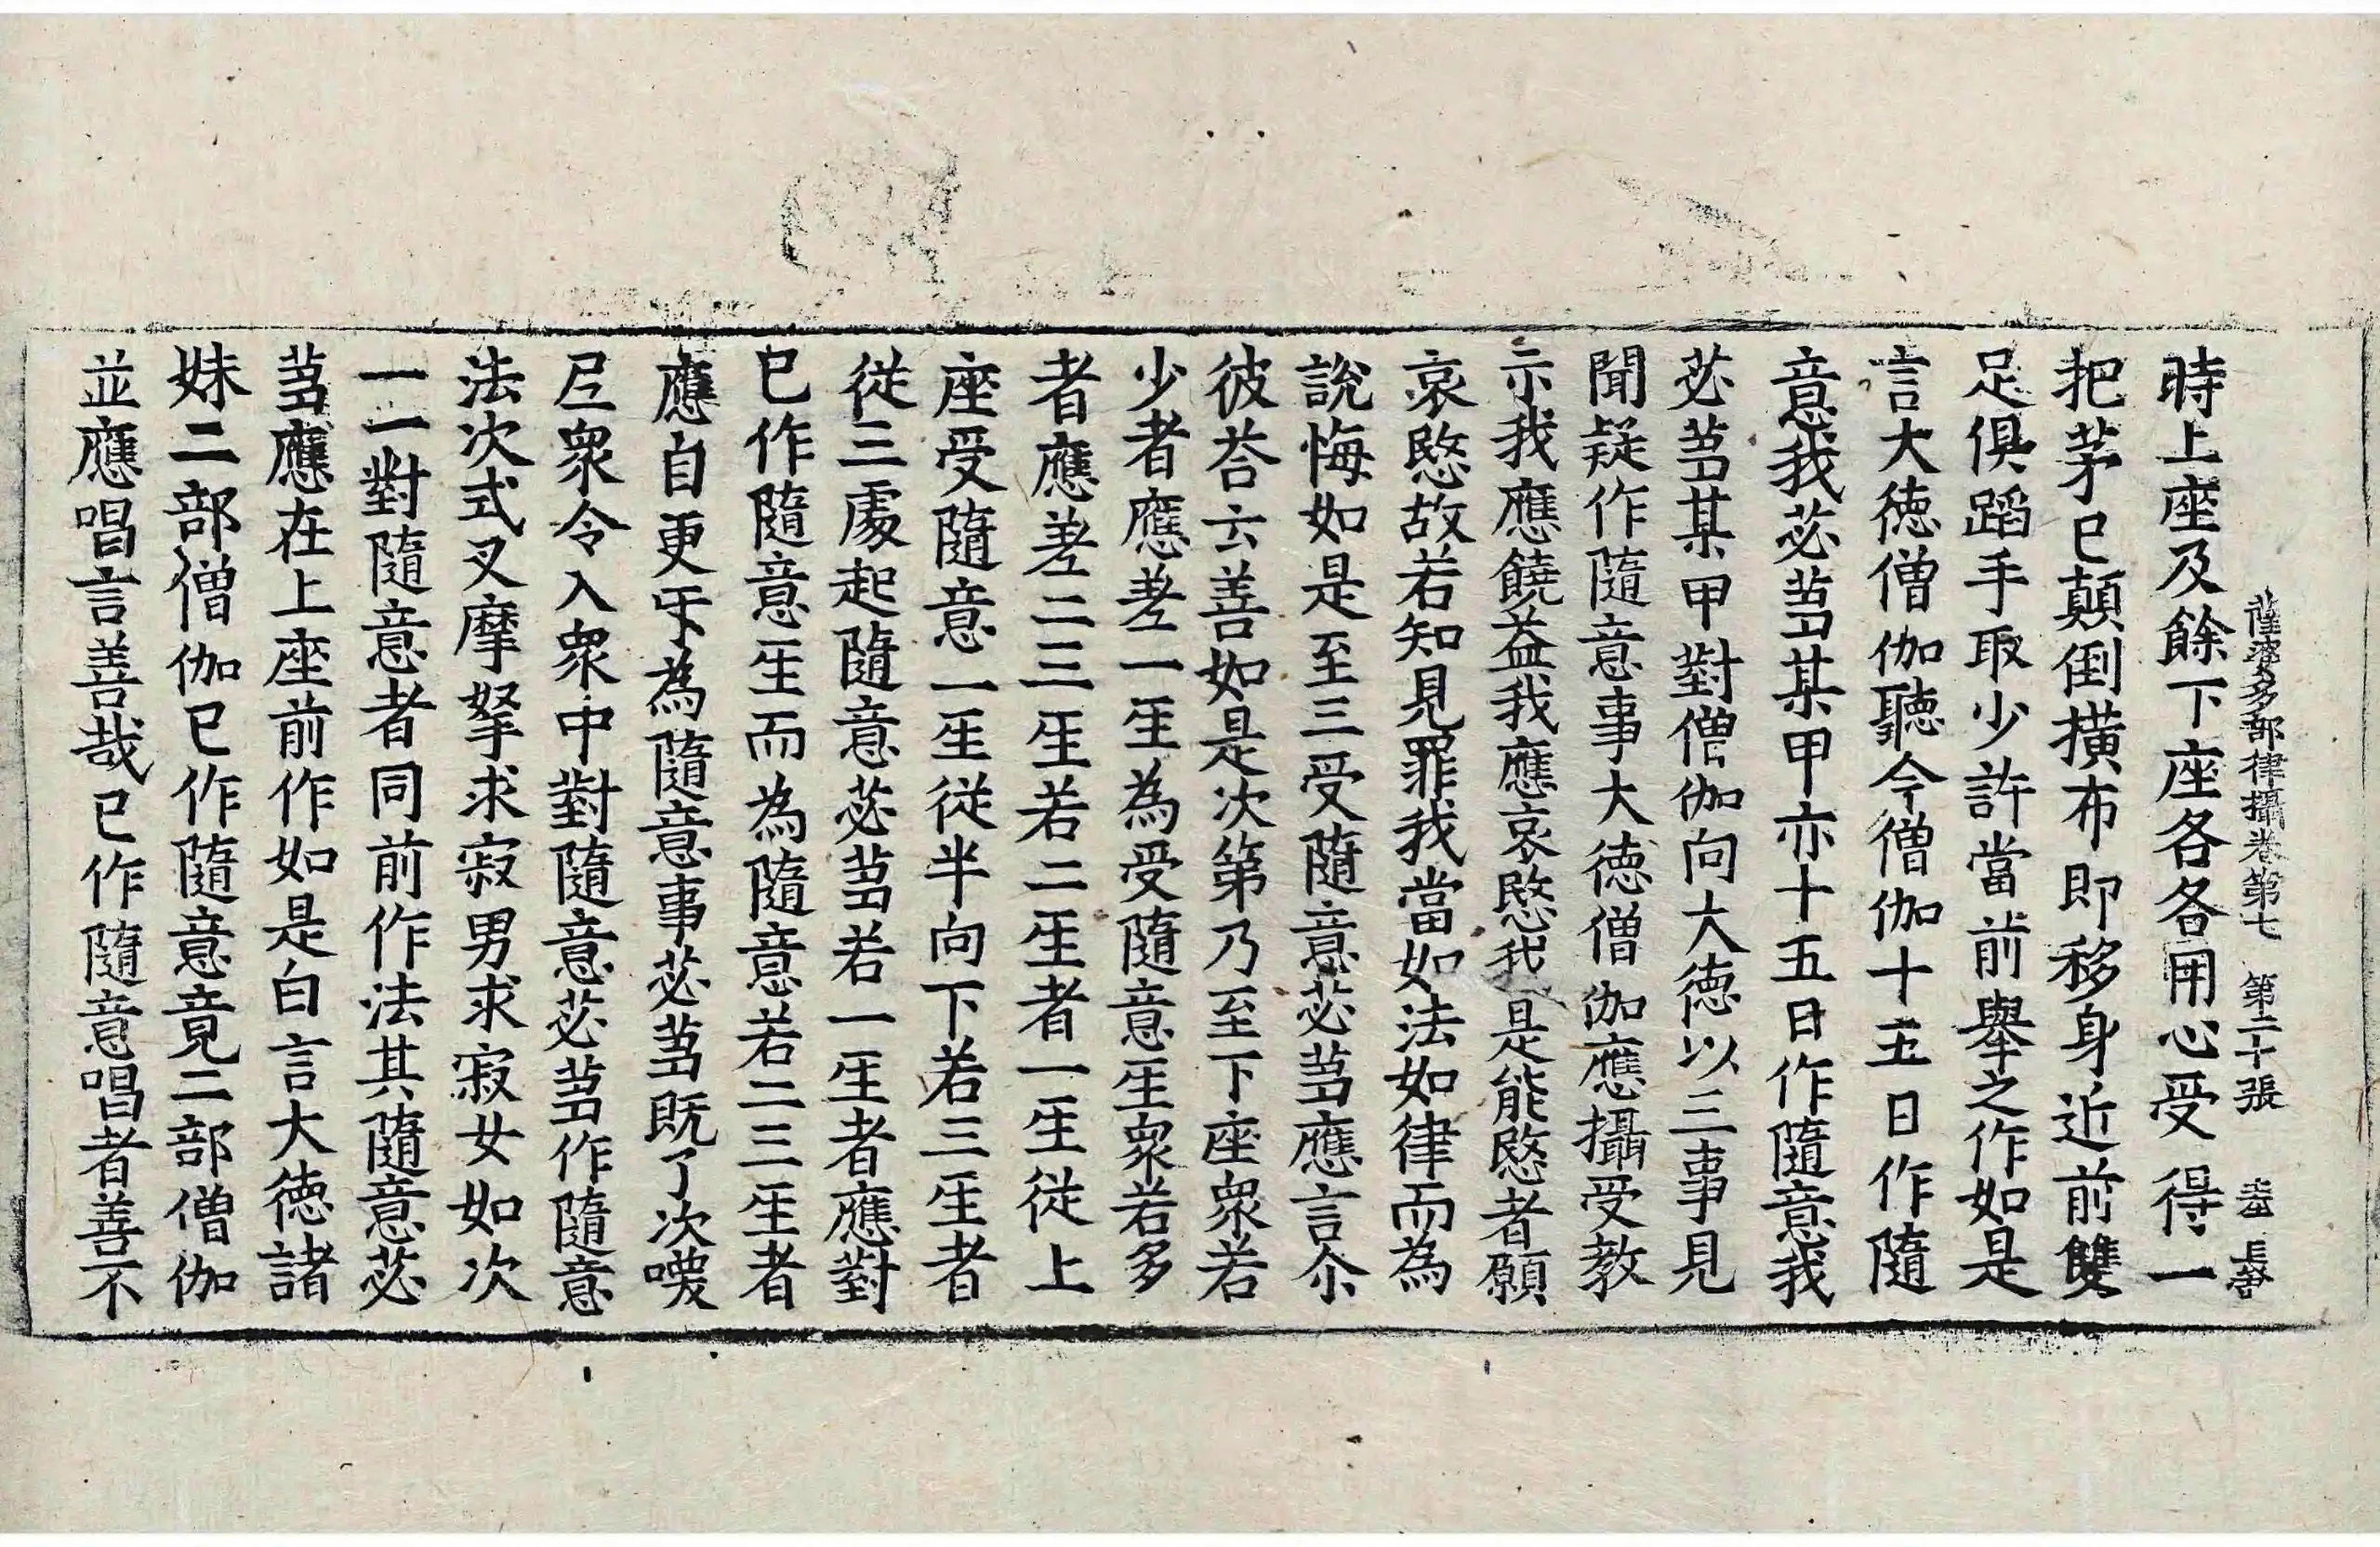 薩婆多部律攝卷第七 第二十張
時上座及餘下座各各用心受得一
把茅已顛倒撗布即移身近前雙
足俱蹈手取少許當前舉之作如是
言大德僧伽聽今僧伽十五日作隨
意我苾芻某甲亦十五日作隨意我
苾芻某甲對僧伽向大德以三事見
聞疑作隨意事大德僧伽應攝受教
示我應饒益我應哀愍我是能愍者願
哀愍故若知見罪我當如法如律而為
說悔如是至三受隨意苾芻應言尒
彼荅云善如是次第乃至下座衆若
少者應差一生為受隨意生衆若多
者應差二三生若二生者一生從上
座受隨意一生從半向下若三生者
從三處起隨意苾芻若一生者應對
已作隨意生而為隨意若二三生者
應自更㸦為隨意事苾芻既了次喚
尼衆令入衆中對隨意苾芻作隨意
法次式叉摩拏求寂男求寂女如次
一一對隨意者同前作法其隨意苾
芻應在上座前作如是白言大德諸
妹二部僧伽已作隨意竟二部僧伽
並應唱言善哉已作隨意唱者善不